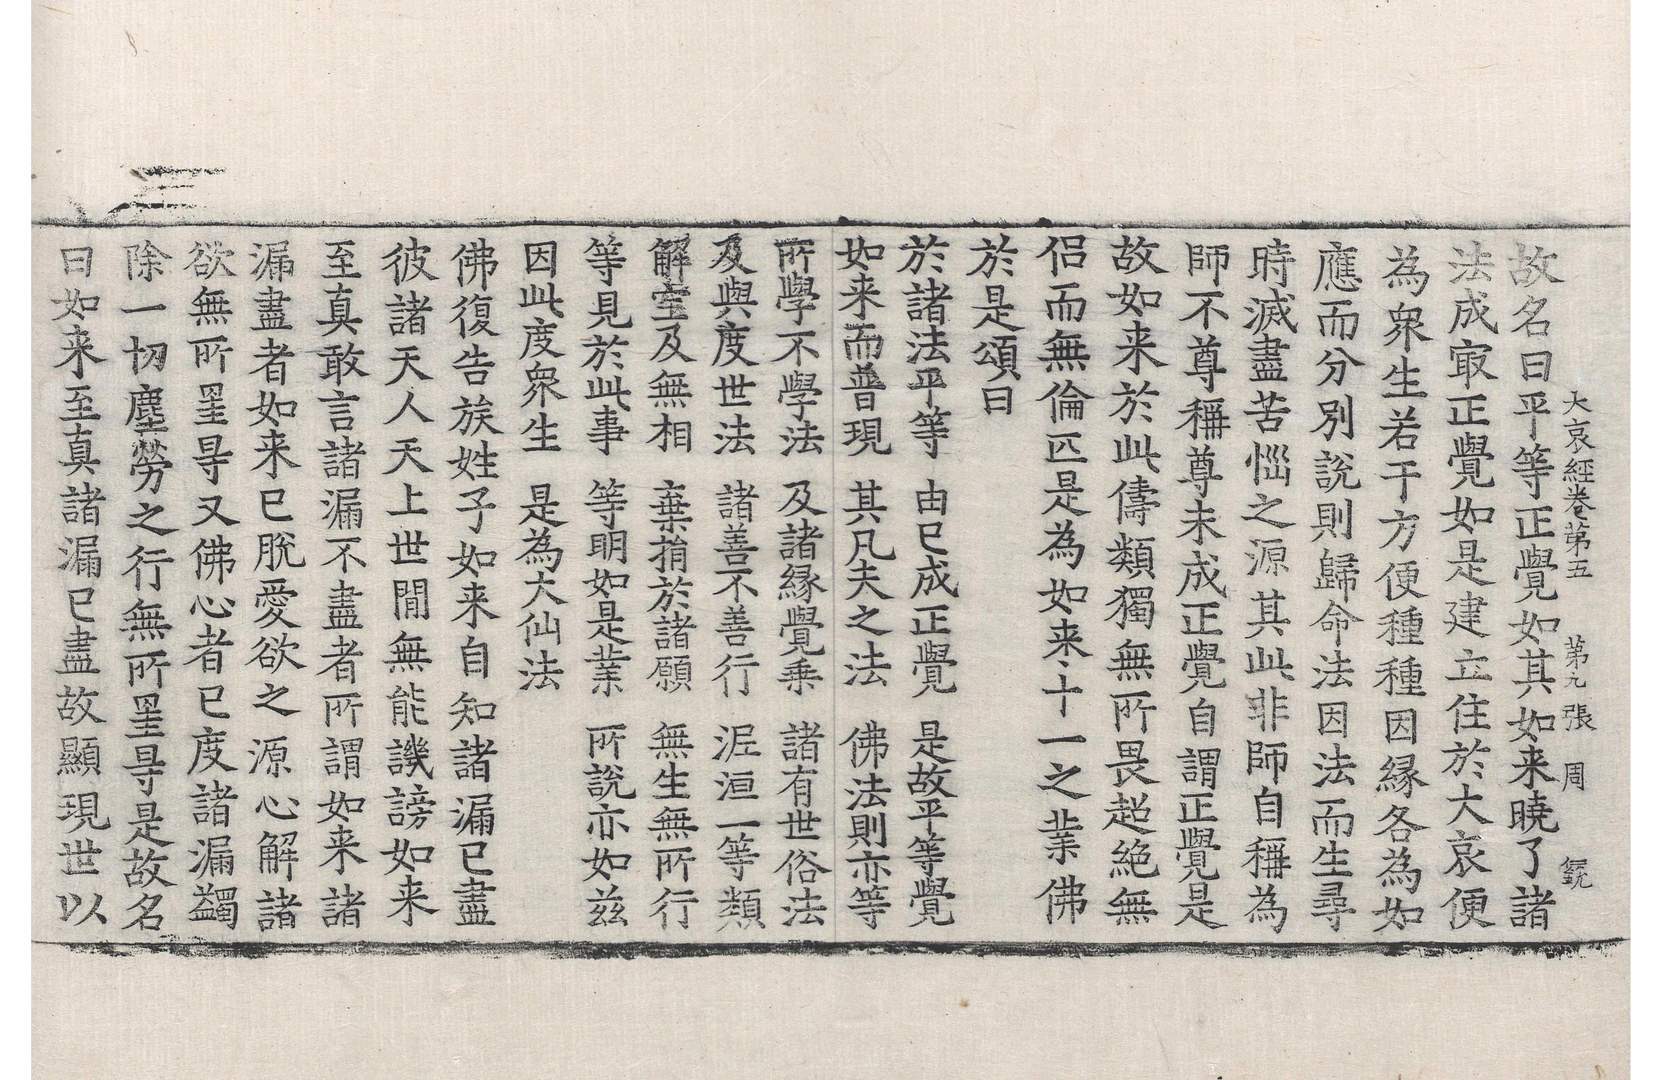 大哀經卷第五　第九張　周　鋧
故名曰平等正覺如其如来曉了諸
法成㝡正覺如是建立住於大哀便
為衆生若干方便種種因緣各為如
應而分別說則歸命法因法而生尋
時滅盡苦惱之源其此非師自稱為
師不尊稱尊未成正覺自謂正覺是
故如来於此儔類獨無所畏超絶無
侶而無倫匹是為如来十一之業佛
於是頌曰
於諸法平等　由已成正覺　是故平等覺
如来而普現　其凡夫之法　佛法則亦等
所學不學法　及諸緣覺乗　諸有世俗法
及與度世法　諸善不善行　泥洹一等類
解空及無相　棄捐於諸願　無生無所行
等見於此事　等明如是業　所說亦如兹
因此度衆生　是為大仙法
佛復告族姓子如来自知諸漏已盡
彼諸天人天上世間無能譏謗如来
至真敢言諸漏不盡者所謂如来諸
漏盡者如来已脫愛欲之源心解諸
欲無所罣㝵又佛心者已度諸漏蠲
除一切塵勞之行無所罣㝵是故名
曰如来至真諸漏已盡故顯現世以